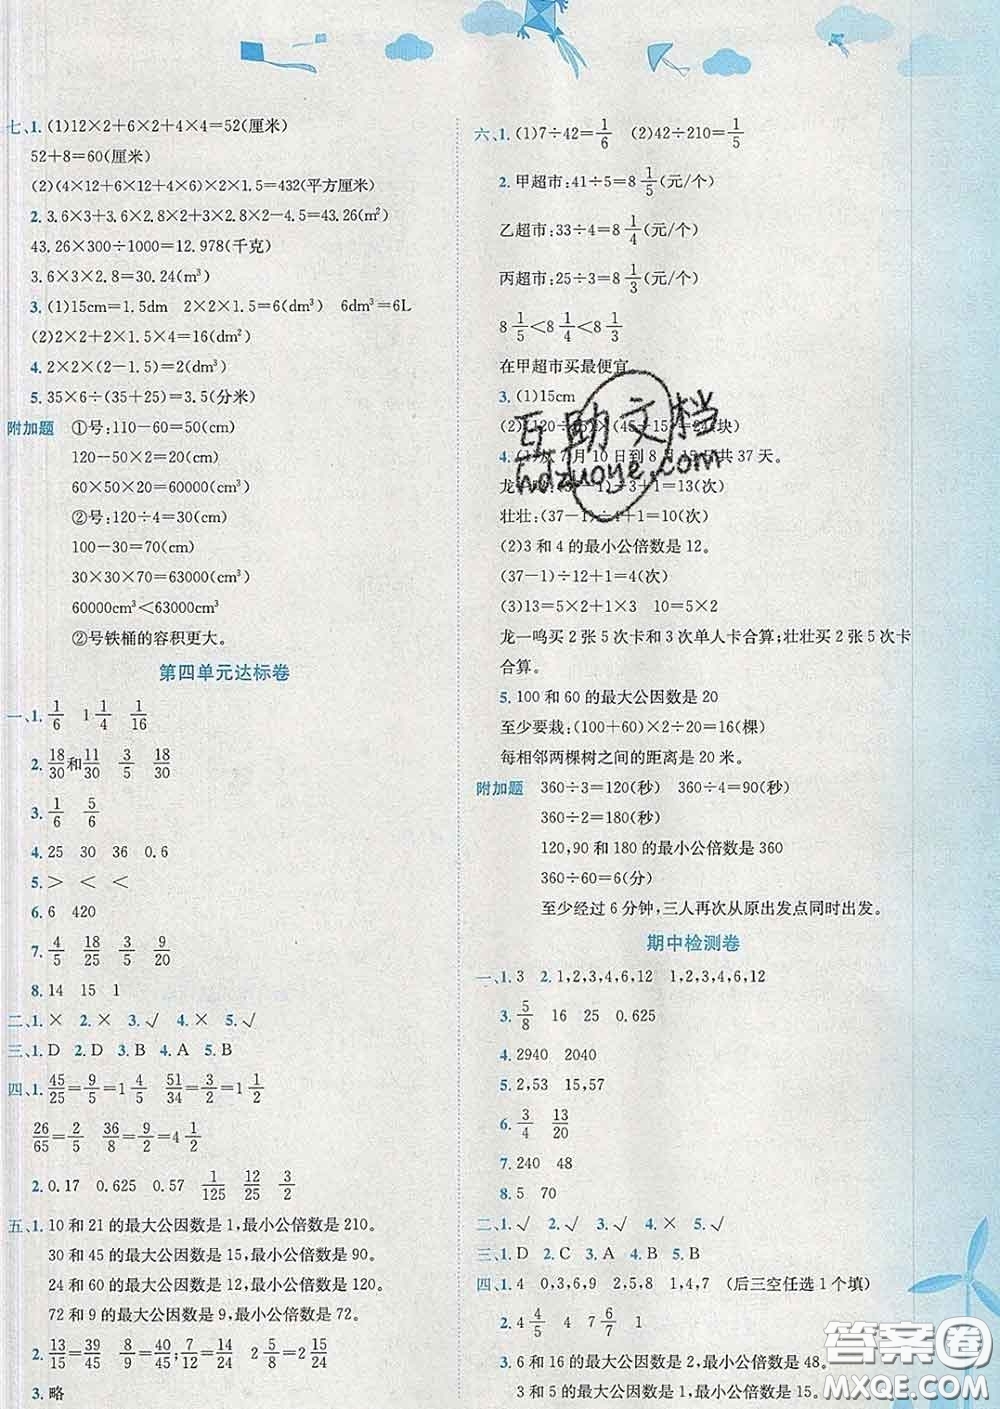 七、1. (1)12×2+6×2+4×4=52(厘米)
52+8=60(厘米)
(2)(4×12+6×12+4×6)×2×1.5=432(平方厘米)
2. 3.6×3+3.6×2.8×2+3×2.8×2-4.5=43.26(m²)
43.26×300÷1000=12.978(千克)
3.6×3×2.8=30.24(m³)
3. (1)15cm=1.5dm 2×2×1.5=6(dm³) 6dm³=6L
(2)2×2+2×1.5×4=16(dm²)
4. 2×2×(2-1.5)=2(dm³)
5. 35×6÷(35+25)=3.5(分米)
附加题 ①号:110-60=50(cm)
120-50×2=20(cm)
60×50×20=60000(cm³)
②号:120÷4=30(cm)
100-30=70(cm)
30×30×70=63000(cm³)
60000cm³<63000cm³
②号铁桶的容积更大。
第四单元达标卷
一、1. 1/6 1 1/4 1/16
2. 18/30和11/30 3/5 18/30
3. 1/6 5/6
4. 25 30 36 0.6
5. > < <
6. 6 420
7. 4/5 18/25 3/5 9/20
8. 14 15 1
二、1. × 2. × 3. √ 4. × 5. √
三、1. D 2. D 3. B 4. A 5. B
四、1. 45/25=9/5=1 4/5 51/34=3/2=1 1/2
26/65=2/5 36/8=9/2=4 1/2
2. 0.17 0.625 0.57 1/125 12/25
五、1. 10 和 21 的最大公因数是 1,最小公倍数是 210。
30 和 45 的最大公因数是 15,最小公倍数是 90。
24 和 60 的最大公因数是 12,最小公倍数是 120。
72 和 9 的最大公因数是 9,最小公倍数是 72。
2. 13/15=39/45 8/9=40/45; 7/12=14/24 2 5/8=2 15/24
3. 略
六、1. (1)7÷42=1/6 (2)42÷210=1/5
2. 甲超市:41÷5=8 1/5(元/个)
乙超市:33÷4=8 1/4(元/个)
丙超市:25÷3=8 1/3(元/个)
8 1/5<8 1/4<8 1/3
在甲超市买最便宜
3. (1)15cm
(2)(120÷15)×(45÷15)=24(块)
4. (1)从 7 月 10 日到 8 月 15 日共 37 天。
龙一鸣:(37-1)÷3+1=13(次)
壮壮:(37-1)÷4+1=10(次)
(2)3 和 4 的最小公倍数是 12。
(37-1)÷12+1=4(次)
(3)13=5×2+1×3 10=5×2
龙一鸣买 2 张 5 次卡和 3 次单人卡合算;壮壮买 2 张 5 次卡
合算。
5. 100 和 60 的最大公因数是 20
至少要栽:(100+60)×2÷20=16(棵)
每相邻两棵树之间的距离是 20 米。
附加题 360÷3=120(秒) 360÷4=90(秒)
360÷2=180(秒)
120,90 和 180 的最小公倍数是 360
360÷60=6(分)
至少经过 6 分钟,三人再次从原出发点同时出发。
期中检测卷
一、1. 3 2. 1,2,3,4,6,12 1,2,3,4,6,12
3. 5/8 16 25 0.625
4. 2940 2040
5. 2,53 15,57
6. 3/4 13/20
7. 240 48
8. 5 70
二、1. √ 2. √ 3. √ 4. √ 5. √
三、1. D 2. C 3. A 4. B 5. B
四、1. 4 0,3,6,9 2,5,8 1,4,7 (后三空任选 1 个填)
2. 4 4/5 4 7 6/7 1
3. 6 和 16 的最大公因数是 2,最小公倍数是 48。
3 和 5 的最大公因数是 1,最小公倍数是 15。
互助文档
hdzuoye.com
答案圈
MXQE.COM